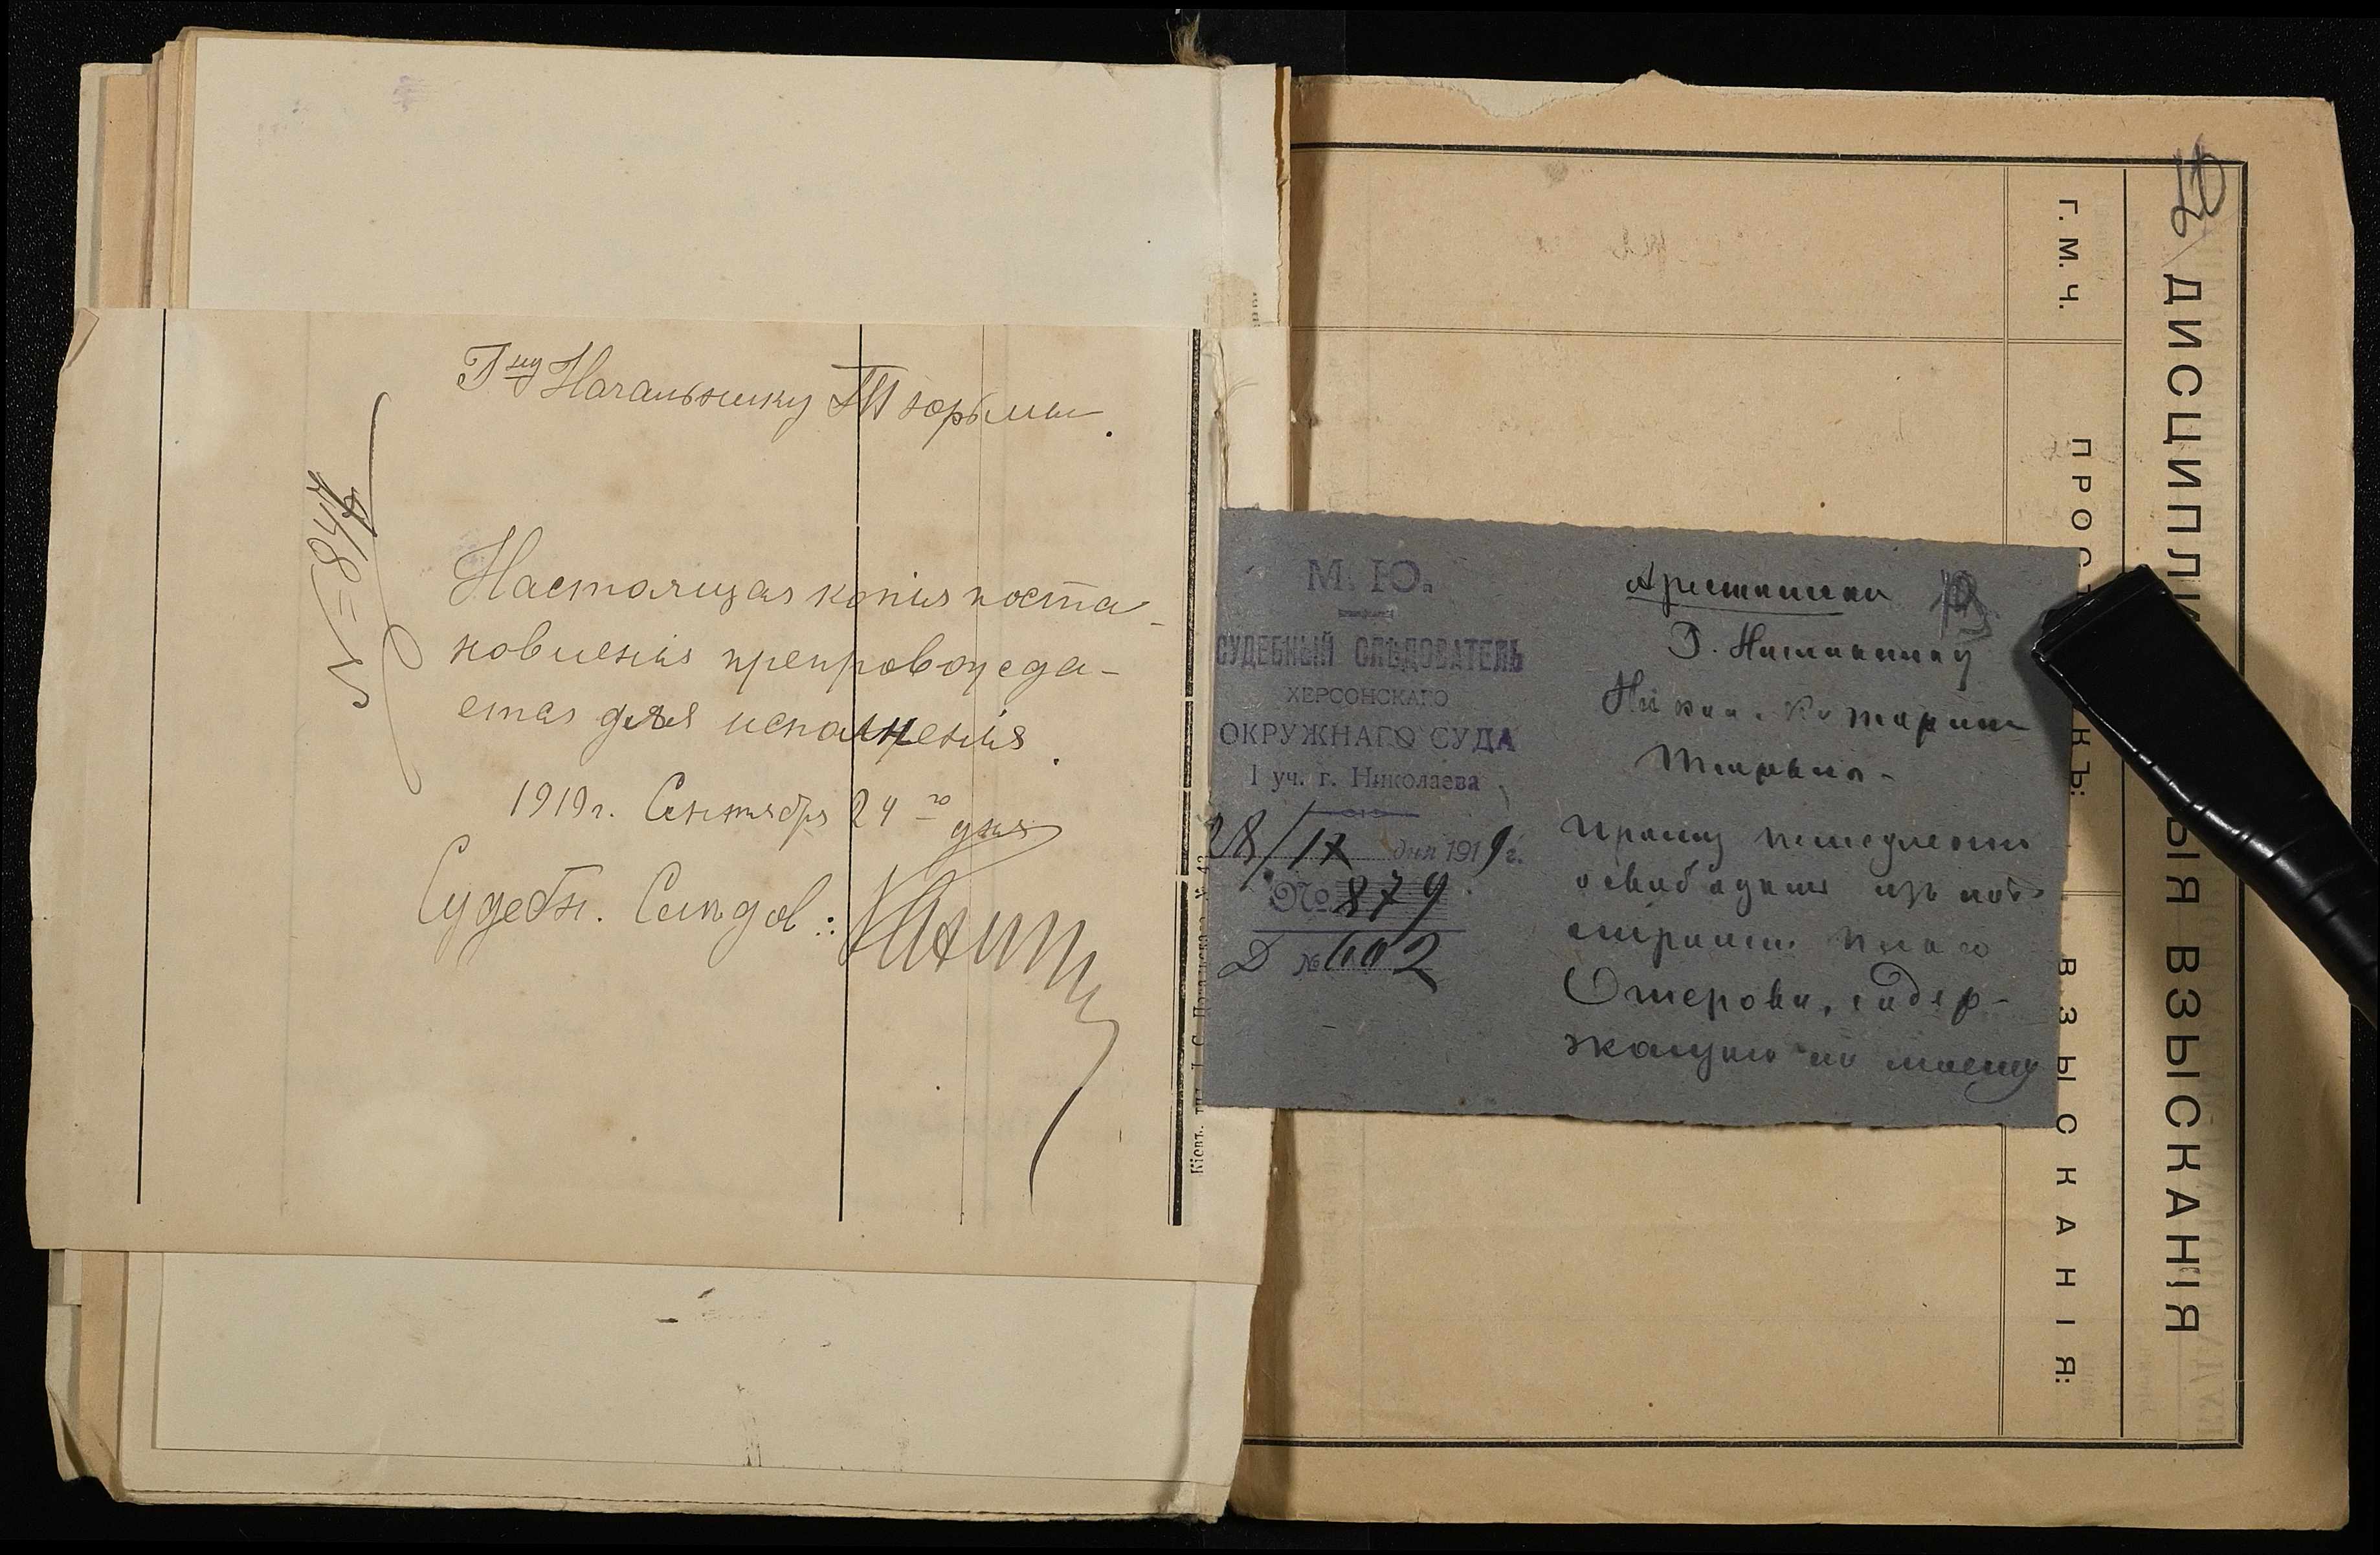 Г<sup>ну</sup> Начальнику Тюрьмы.
N = 847
Настоящая копія поста-
новленія препровожда-
ется для исполненія.
1919 г. Сентября 24 го дня
Судебн. Следов:
М. Ю.
СУДЕБНЫЙ СЛѢДОВАТЕЛЬ
ХЕРСОНСКАГО
ОКРУЖНАГО СУДА
I уч. г. Николаева
28/IX дня 1919 г.
№ 879
Д № 602
Арестантская
Г. Начальнику
Никол. Каторжн.
Тюрьмы.
Прошу немедленно
освободить изъ подъ
стражи
Отерова, содер-
жащуюся по моему
ДИСЦИПЛИ ЫЯ ВЗЫСКАНІЯ
Г. М. Ч.
ПРОСТ КЪ:
ВЗЫСКАНІЯ: